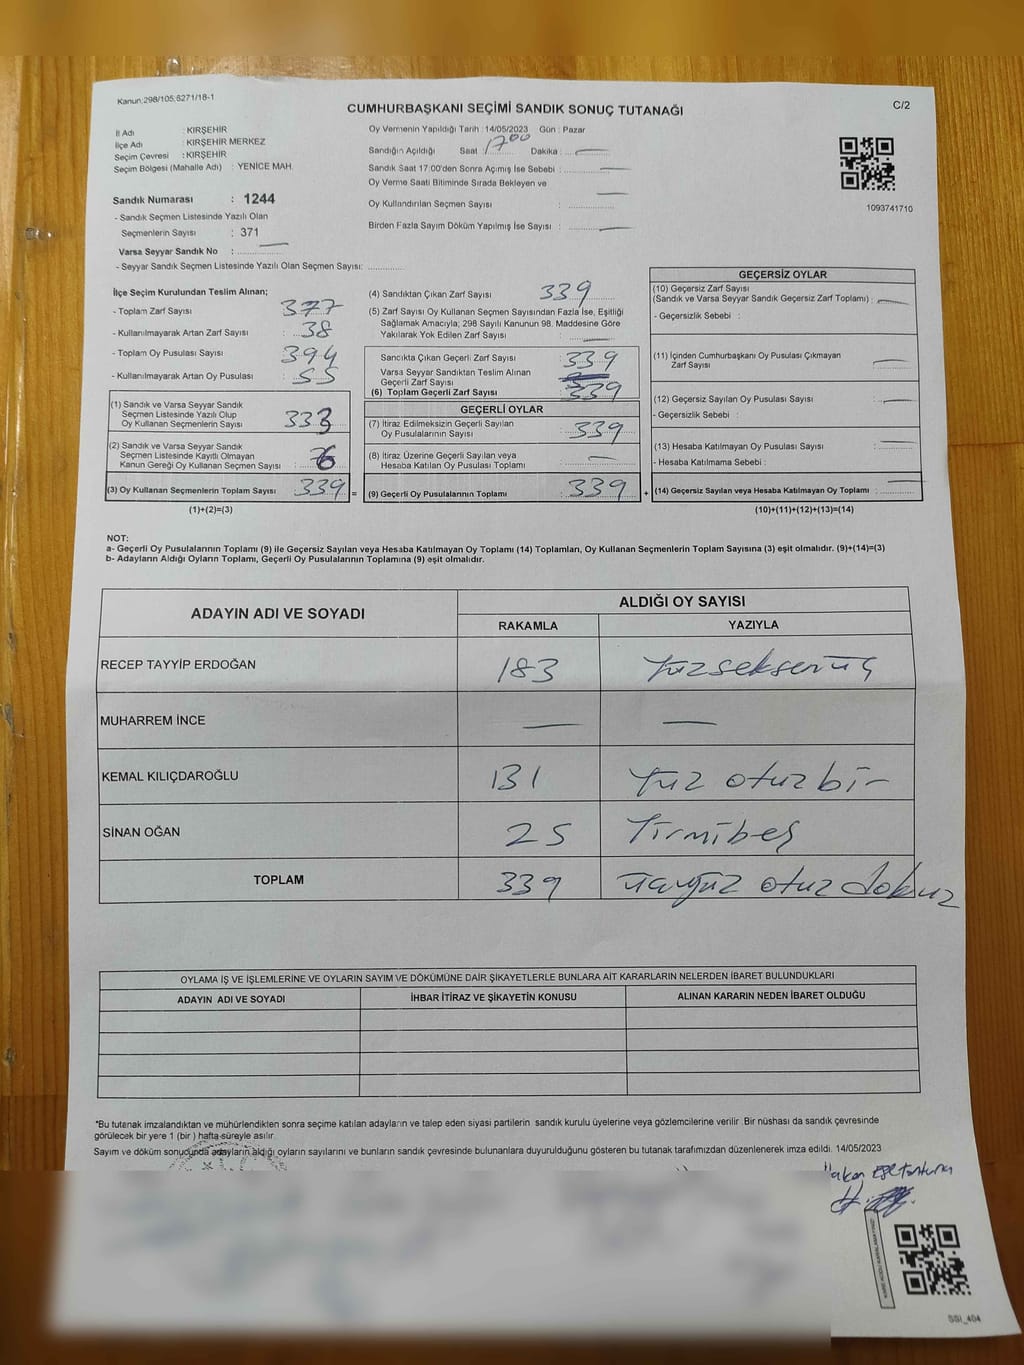 Kanun:298/105;6271/18-1
CUMHURBAŞKANI SEÇİMİ SANDIK SONUÇ TUTANAĞI
C/2
İl Adı : KIRŞEHİR
İlçe Adı : KIRŞEHİR MERKEZ
Seçim Çevresi : KIRŞEHİR
Seçim Bölgesi (Mahalle Adı) : YENİCE MAH.
Sandık Numarası : 1244
- Sandık Seçmen Listesinde Yazılı Olan
Seçmenlerin Sayısı : 371
Varsa Seyyar Sandık No :
- Seyyar Sandık Seçmen Listesinde Yazılı Olan Seçmen Sayısı:
Oy Vermenin Yapıldığı Tarih : 14/05/2023 Gün : Pazar
Sandığın Açıldığı Saat : 17 00 Dakika : —
Sandık Saat 17:00'den Sonra Açımış İse Sebebi : —
Oy Verme Saati Bitiminde Sırada Bekleyen ve
Oy Kullandırılan Seçmen Sayısı : —
Birden Fazla Sayım Döküm Yapılmış İse Sayısı : —
1093741710
İlçe Seçim Kurulundan Teslim Alınan;
- Toplam Zarf Sayısı : 377
- Kullanılmayarak Artan Zarf Sayısı : 38
- Toplam Oy Pusulası Sayısı : 394
- Kullanılmayarak Artan Oy Pusulası : 55
(1) Sandık ve Varsa Seyyar Sandık
Seçmen Listesinde Yazılı Olup
Oy Kullanan Seçmenlerin Sayısı : 333
(2) Sandık ve Varsa Seyyar Sandık
Seçmen Listesinde Kayıtlı Olmayan
Kanun Gereği Oy Kullanan Seçmen Sayısı : 6
(3) Oy Kullanan Seçmenlerin Toplam Sayısı : 339 =
(1)+(2)=(3)
(4) Sandıktan Çıkan Zarf Sayısı : 339
(5) Zarf Sayısı Oy Kullanan Seçmen Sayısından Fazla İse, Eşitliği
Sağlamak Amacıyla; 298 Sayılı Kanunun 98. Maddesine Göre
Yakılarak Yok Edilen Zarf Sayısı : —
Sandıkta Çıkan Geçerli Zarf Sayısı : 339
Varsa Seyyar Sandıktan Teslim Alınan
Geçerli Zarf Sayısı
(6) Toplam Geçerli Zarf Sayısı : 339
GEÇERLİ OYLAR
(7) İtiraz Edilmeksizin Geçerli Sayılan
Oy Pusulalarının Sayısı : 339
(8) İtiraz Üzerine Geçerli Sayılan veya
Hesaba Katılan Oy Pusulası Toplamı : —
(9) Geçerli Oy Pusulalarının Toplamı : 339 +
GEÇERSİZ OYLAR
(10) Geçersiz Zarf Sayısı
(Sandık ve Varsa Seyyar Sandık Geçersiz Zarf Toplamı) : —
- Geçersizlik Sebebi :
(11) İçinden Cumhurbaşkanı Oy Pusulası Çıkmayan
Zarf Sayısı : —
(12) Geçersiz Sayılan Oy Pusulası Sayısı : —
- Geçersizlik Sebebi :
(13) Hesaba Katılmayan Oy Pusulası Sayısı : —
- Hesaba Katılmama Sebebi :
(14) Geçersiz Sayılan veya Hesaba Katılmayan Oy Toplamı : —
(10)+(11)+(12)+(13)=(14)
NOT:
a- Geçerli Oy Pusulalarının Toplamı (9) ile Geçersiz Sayılan veya Hesaba Katılmayan Oy Toplamı (14) Toplamları, Oy Kullanan Seçmenlerin Toplam Sayısına (3) eşit olmalıdır. (9)+(14)=(3)
b- Adayların Aldığı Oyların Toplamı, Geçerli Oy Pusulalarının Toplamına (9) eşit olmalıdır.
ADAYIN ADI VE SOYADI ALDIĞI OY SAYISI
RAKAMLA YAZIYLA
RECEP TAYYİP ERDOĞAN 183 Yüzseksenüç
MUHARREM İNCE — —
KEMAL KILIÇDAROĞLU 131 Yüz otuzbir
SİNAN OĞAN 25 Yirmibeş
TOPLAM 339 üçyüz otuz dokuz
OYLAMA İŞ VE İŞLEMLERİNE VE OYLARIN SAYIM VE DÖKÜMÜNE DAİR ŞİKAYETLERLE BUNLARA AİT KARARLARIN NELERDEN İBARET BULUNDUKLARI
ADAYIN ADI VE SOYADI İHBAR İTİRAZ VE ŞİKAYETİN KONUSU ALINAN KARARIN NEDEN İBARET OLDUĞU
*Bu tutanak imzalandıktan ve mühürlendikten sonra seçime katılan adayların ve talep eden siyasi partilerin sandık kurulu üyelerine veya gözlemcilerine verilir. Bir nüshası da sandık çevresinde
görülecek bir yere 1 (bir ) hafta süreyle asılır.
Sayım ve döküm sonucunda adayların aldığı oyların sayılarını ve bunların sandık çevresinde bulunanlara duyurulduğunu gösteren bu tutanak tarafımızdan düzenlenerek imza edildi. 14/05/2023
Hakan
SSI_404